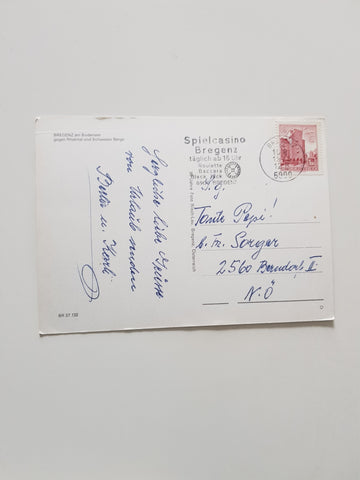 BREGENZ am Bodensee
gegen Rheintal und Schweizer Berge
Herzliche liebe Grüsse
von Urlaub senden
Berta u. Karli
BR 57 132
Spielcasino
Bregenz
täglich ab 16 Uhr
Roulette
Baccara
Black Jack
6900 Bregenz
6900
Tante Pepi!
b. Fr. Sorger
2560 Berndorf II
N.Ö